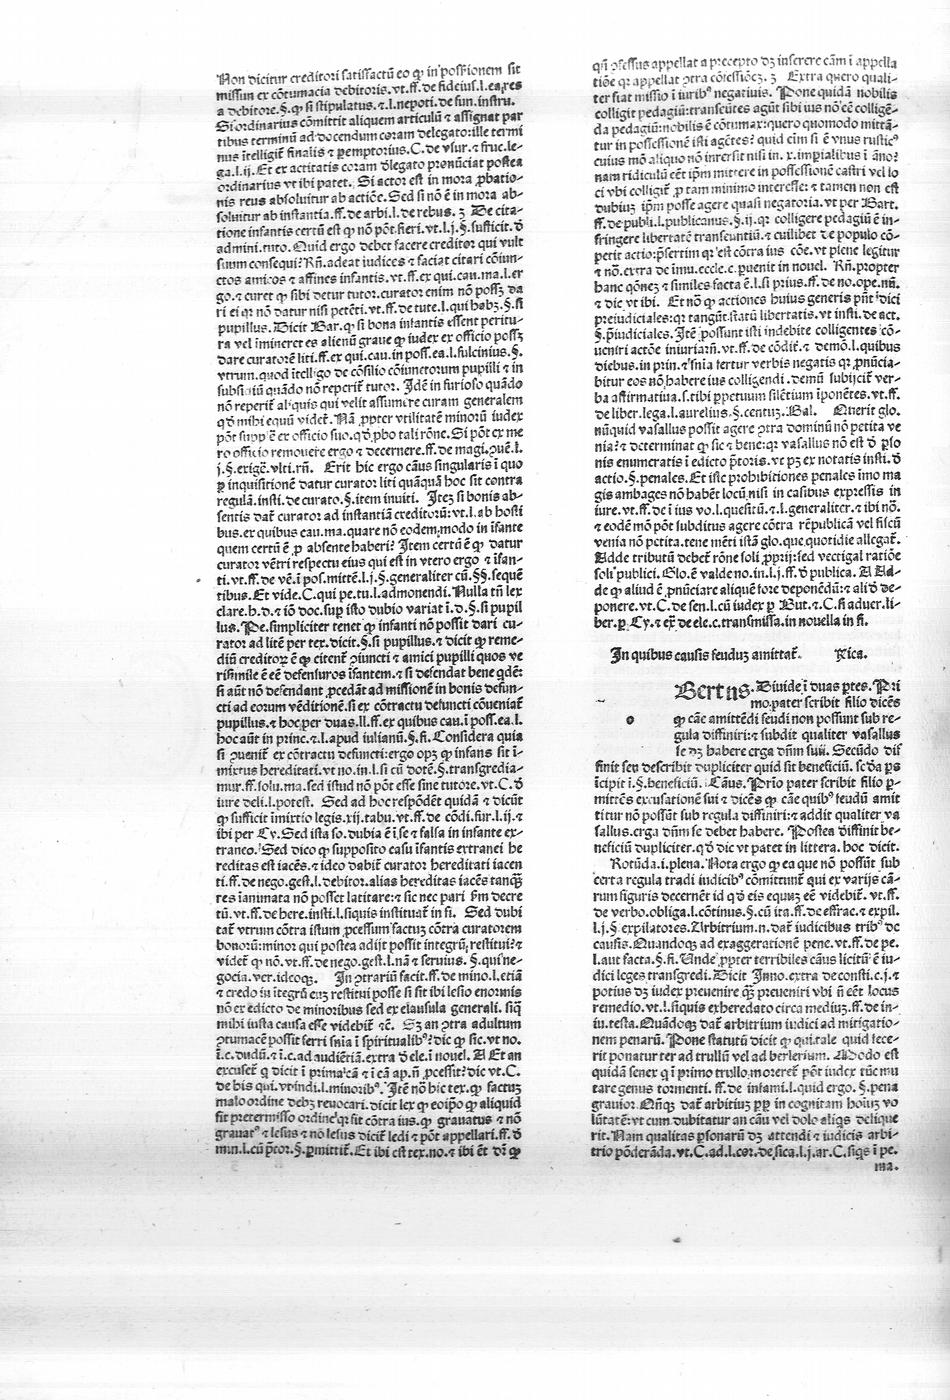 Non dicitur creditori satisfactū eo ꝙ in possessionem sit
missus ex cōtumacia debitoris.vt.ff.de fideius.l.ea,res
a debitore.§.ꝙ si stipulatus.⁊.l.nepoti.de fun.instru.
Si ordinarius cōmittit aliquem articulū ⁊ assignat par
tibus terminū ad docendum coram delegato:ille termi
nus ītelligit̄ finalis ⁊ ꝑemptorius.C.de vsur.⁊ fruc.le-
ga.l.ij.Et ex actitatis coram delegato pronūciat postea
ordinarius vt ibi patet. Si actor est in mora ꝓbatio-
nis reus absoluitur ab actiōe.Sed si nō ē in mora ab-
soluitur ab instantia.ff.de arbi.l.de rebus.ʒ De cita-
tione infantis certū est ꝙ nō pōt.fieri.vt.l.j.§.sufficit.d̄
admini.tuto.Quid ergo debet facere creditor qui vult
suum consequi?Rn̄.adeat iudices ⁊ faciat citari cōiun-
ctos amicos ⁊ affines infantis.vt.ff.ex qui.cau.ma.l.er
go.⁊ curet ꝙ sibi detur tutor.curator enim nō possʒ da
ri ei qꝛ nō datur nisi petēti.vt.ff.de tute.l.qui habʒ.§.si
pupillus.Dicit Bar.ꝙ si bona infantis essent peritu-
ra vel īmineret es alienū graue ꝙ iudex ex officio possʒ
dare curatorē liti.ff.ex qui.cau.in poss.ea.l.fulcinius.§.
vtrum.quod ītelligo de cōsilio cōiunctorum pupilli ⁊ in
subsidiū quādo nō reperit̄ tutor. Idē in furioso quādo
nō reperit̄ aliquis qui velit assumere curam generalem
qd̄ mihi equū videt̄. Nā ꝓpter vtilitatē minorū iudex
pōt supplē ex officio suo.qd̄ ꝓbo tali rōne.Si pōt ex me
ro officio remouere ergo ⁊ decernere.ff.de magi.ꝯuē.l.
j.§.exigē.vlti.rn̄. Erit hic ergo cāus singularis ī quo
ꝑ inquisitionē datur curator liti quāquā hoc sit contra
regulā.insti.de curato.§.item inuiti. Iteʒ si bonis ab-
sentis dat̄ curator ad instantiā creditorū:vt.l.ab hosti
bus.ex quibus cau.ma.quare nō eodem,modo in īfante
quem certū ē ꝓ absente haberi? Item certū ē ꝙ datur
curator vētri respectu eius qui est in vtero ergo ⁊ īfan-
ti.vt.ff.de vē.ī pos.mittē.l.j.§.generaliter cū.§§.sequē
tibus.Et vide.C.qui pe.tu.l.admonendi.Nulla tn̄ lex
clare.h.d.⁊ iō doc.sup isto dubio variāt ī.d.§.si pupil
lus. Pe.simpliciter tenet ꝙ infanti nō possit dari cu-
rator ad litē per tex.dicit.§.si pupillus.⁊ dicit ꝙ reme-
diū creditoꝝ ē ꝙ citent̄ ꝯiuncti ⁊ amici pupilli quos ve
risimile ē eē defensuros īfantem.⁊ si defendāt bene qdē:
si aūt nō defendant ꝓcedāt ad missionē in bonis defun-
cti ad eorum vēditionē.si ex cōtractu defuncti cōueniat̄
pupillus.⁊ hoc,per duas.ll.ff.ex quibus cau.ī poss.ea.l.
hoc aūt in princ.⁊.l.apud iulianū.§.fi. Considera quia
si ꝯuenit̄ ex cōtractu defuncti:ergo opʒ ꝙ infans sit ī-
mixtus hereditati.vt no.in.l.si cū dotē.§.transgredia-
mur.ff.solu.ma.sed istud nō pōt esse sine tutore.vt.C.d̄
iure deli.l.potest. Sed ad hoc respōdēt quidā ⁊ dicūt
ꝙ sufficit īmixtio legis.xij.tabu.vt.ff.de cōdi.fur.l.ij.⁊
ibi per Cy.Sed ista so.dubia ē ī se ⁊ falsa in infante ex-
traneo.Sed dico ꝙ supposito casu īfantis extranei he
reditas est iacēs.⁊ ideo dabit̄ curator hereditati iacen
ti.ff.de nego.gest.l.debitor.alias hereditas iacēs tanqȝ̄
res ianimata nō posset latitare:⁊ sic nec pari ꝟm decre
tū.vt.ff.de here.insti.l.siquis instituat̄ in fi. Sed dubi
tat̄ vtrum cōtra istum ꝓcessum factuʒ cōtra curatorem
bonorū:minor qui postea adijt possit integrū,restitui?⁊
videt̄ ꝙ nō.vt.ff.de nego.gest.l.nā ⁊ seruius.§.qui ne-
gocia.ver.ideoqʒ. In ꝯtrariū facit.ff.de mino.l.etiā
⁊ credo in ītegrū euʒ restitui posse si sit ibi lesio enormis
nō ex edicto de minoribus sed ex clausula generali. siq̄
mihi iusta causa esse videbit̄ ⁊c̄. Sʒ an ꝯtra adultum
ꝯtumacē possit ferri snīa ī spiritualibꝰ?dic ꝙ sic.vt no.
ī.c.dudū.⁊ ī.c.ad audiētiā.extra d̄ ele.ī nouel. A Et an
excuset̄ q̄ dicit ī prima cā ⁊ ī cā ap.n̄ ꝓcessit?dic vt.C.
de his qui.vt indi.l.minoribꝰ. Itē nō hic tex.ꝙ factuʒ
malo ordine debʒ reuocari.dicit lex ꝙ eoip̄o ꝙ aliquid
fit pretermisso ordine qꝛ fit cōtra ius.ꝙ grauatus ⁊ nō
grauatꝰ ⁊ lesus ⁊ nō lesus dicit̄ ledi ⁊ pōt appellari.ff.d̄
min.l.cū p̄tor.§.ꝑmittit̄.Et ibi est tex.no.⁊ ibi ēt dr̄ ꝙ
qn̄ ꝯfessus appellat a precepto dʒ inserere cām ī appella
tiōe qꝛ appellat ꝯtra cōfessiōeʒ.ʒ Extra quero quali-
ter fiat missio ī iuribꝰ negatiuis. Pone quidā nobilis
colligit pedagiū:transeūtes agūt sibi ius nō eē colligē-
da pedagiū:nobilis ē cōtumax:quero quomodo mittā-
tur in possessionē isti agētes? quid eim si ē vnus rusticꝰ
cuius mō aliquo nō interfit nisi in.x.imꝑialibus ī āno?
nam ridiculū eēt ip̄m mittere in possessionē castri vel lo
ci vbi colligit̄ ꝓ tam minimo interesse:⁊ tamen non est
dubiuʒ ip̄m posse agere quasi negatoria.vt per Bart.
ff.de publi.l.publicanus.§.ij.qꝛ colligere pedagiū ē in-
fringere libertatē transeuntiū.⁊ cuilibet de populo cō-
petit actio:p̄sertim qꝛ est cōtra ius cōe.vt plene legitur
⁊ nō.extra de īmu.eccle.c.ꝑuenit in nouel. Rn̄.propter
hanc qōneʒ ⁊ similes facta ē.l.si prius.ff.de no.ope.nū.
⁊ dic vt ibi. Et nō ꝙ actiones huius generis pn̄t dici
preiudiciales:qꝛ tangūt.statū libertatis.vt insti.de act.
§.p̄iudiciales.Itē possunt isti indebite colligentes cō-
ueniri actōe iniuriaꝝ.vt.ff.de cōdit̄.⁊ demō.l.quibus
diebus.in prin.⁊ snīa fertur verbis negatis qꝛ ꝓnūcia-
bitur eos nō,habere ius colligendi.demū subijcit̄ ver-
ba affirmatiua.s.tibi ꝑpetuum silētium īponētes.vt.ff.
de liber.lega.l.aurelius.§.centuʒ.Bal. Querit glo.
nūquid vasallus possit agere ꝯtra dominū nō petita ve
nia?⁊ determinat ꝙ sic ⁊ bene:qꝛ vasallus nō est d̄ ꝑso
nis enumeratis ī edicto p̄toris.vt pʒ ex notatis insti.d̄
actio.§.penales.Et iste prohibitiones penales īmo ma
gis ambages nō habēt locū,nisi in casibus expressis in
iure.vt.ff.de ī ius vo.l.quesitū.⁊.l.generaliter.⁊ ibi nō.
⁊ eodē mō pōt subditus agere cōtra rēpublicā vel fiscū
venia nō petita.tene mēti istā glo.que quotidie allegat̄.
Adde tributū debet̄ rōne soli ꝓprij:sed vectigal ratiōe
soli publici.Glo.ē valde no.in.l.j.ff.d̄ publica. A Ad-
de ꝙ aliud ē ꝓnūciare aliquē fore deponēdū:⁊ aliō de-
ponere.vt.C.de sen.l.cū iudex ꝑ But.⁊.C.si aduer.li-
ber.ꝑ.Cy.⁊ ex̄ de ele.c.transmissa.in nouella in fi.
In quibus causis feuduʒ amittat̄. Rica.
Bertus. Diuide ī duas ptes. Pri
mo,pater scribit filio dicēs
ꝙ cāe amittēdi feudi non possunt sub re-
gula diffiniri:⁊ subdit qualiter vasallus
se dʒ habere erga dn̄m suū. Secūdo dif
finit seu describit dupliciter quid sit beneficiū. scd̄a ps
īcipit ī.§.beneficiū. Cāus. Prīo pater scribit filio ꝑ-
mittēs excusationē sui ⁊ dicēs ꝙ cāe quibꝰ feudū amit
titur nō possūt sub regula diffiniri:⁊ addit qualiter va
sallus.erga dn̄m se debet habere. Postea diffinit be-
neficiū dupliciter.qd̄ dic vt patet in littera. hoc dicit.
Rotūda.i.plena. Nota ergo ꝙ ea que nō possūt sub
certa regula tradi iudicibꝰ cōmittunt̄ qui ex varijs cā-
rum figuris decernēt id qd̄ eis equuʒ eē videbit̄. vt.ff.
de verbo.obliga.l.cōtinus.§.cū ita.ff.de effrac.⁊ expil.
l.j.§ expilatores.Arbitrium.n.dat̄ iudicibus tribꝰ de
causis.Quandoqʒ ad exaggerationē pene.vt.ff.de pe.
l.aut facta.§.fi.Unde ꝓpter terribiles cāus licitū ē iu-
dici leges transgredi.Dicit Inno.extra de consti.c.j.⁊
potius dʒ iudex preuenire qȝ̄ preueniri vbi n̄ eēt locus
remedio.vt.l.siquis exheredato circa mediuʒ.ff.de in-
iu.testa.Quādoqʒ dat̄ arbitrium iudici ad mitigatio-
nem penarū. Pone statutū dicit ꝙ qui.tale quid fece-
rit ponatur ter ad trullū vel ad berlerium. Modo est
quidā senex q̄ ī primo trullo,moreret̄ pōt iudex tūc mu
tare genus tormenti. ff.de infami.l.quid ergo. §.pena
grauior.Qn̄qʒ dat̄ arbitiuʒ ꝓꝑ in cognitam hoiuʒ vo
lūtatē:vt cum.dubitatur an cāu vel dolo aliqs delique
rit.Nam qualitas ꝑsonarū dʒ attendi ⁊ iudicis arbi-
trio pōderāda.vt.C.ad.l.cor.de,sica.l.j.ar.C.siqs ī pe.
ma.